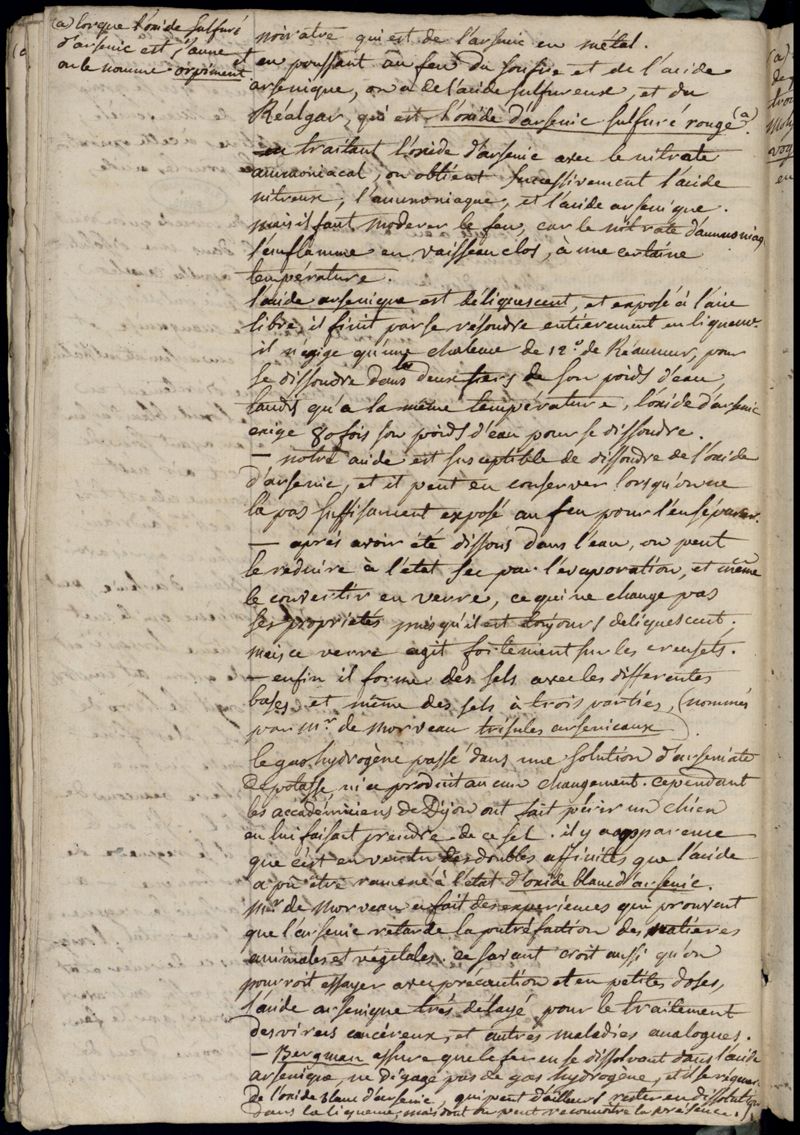 (a) lorsque l'oxide sulfuré
d'arsenic est jaune
on le nomme orpiment
noiratre qui est de l'arsenic en métal.
en poussant au feu du soufre et de l'acide
arsenique, on a de l'acide sulfureux, et du
Réalgar, qui est l'oxide d'arsenic sulfuré rouge (a).
en traitant l'oxide d'arsenic avec le nitrate
ammoniacal, on obtient successivement l'acide
nitreux, l'ammoniaque, et l'acide arsenique.
mais il faut moderer le feu, car le nitrate d'ammoniaq
s'enflamme en vaisseau clos, à une certaine
température.
l'acide arsenique est déliquescent, et exposé à l'air
libre, il finit par se résoudre entierement en liqueur.
il n'éxige qu'une chaleur de 12.° de Réaumur, pour
se dissoudre dans les deux tiers de son poids d'eau,
tandis qu'a la même température, l'oxide d'arsenic
exige 80 fois son poids d'eau pour se dissoudre.
— notre acide est susceptible de dissoudre de l'oxide
d'arsenic, et il peut en conserver lorsqu'on ne
la pas suffisament exposé au feu pour l'en séparer.
— aprés avoir été dissous dans l'eau, on peut
le réduire à l'état sec par l'évaporation, et même
le convertir en verre, ce qui ne change pas
ses propriétés puisqu'il est toujours deliquescent.
mais ce verre agit fortement sur les creusets.
— enfin il forme des sels avec les differentes
bases et même des sels à trois parties, (nommés
par Mr. de Morveau trisules arsenicaux).
le gas hydrogène passé dans une solution d'arseniate
de potasse, n'i a produit aucun changement. cependant
les accadémiciens de Dijon ont fait périr un chien
en lui faisant prendre de ce sel. il y a apparence
que c'est en vertu des doubles affinités que l'acide
a pu être ramené à l'état d'oxide blanc d'arsenic.
Mr. de Morveau a fait des experiences qui prouvent
que l'arsenic retarde la putréfaction des matières
animales et végétales. ce savant croit aussi qu'on
pourroit essayer avec précaution et en petites doses,
l'acide arsenique trés délayé pour le traitement
des virus cancéreux, et autres maladies analogues.
— Bergman assure que le fer en se dissolvant dans l'acide
arsenique, ne dégage pas de gas hydrogène, et
de l'oxide blanc d'arsenic, qui peut d'ailleurs rester en dissolution
dans la liqueur, mais dont on peut reconnoitre la présence.